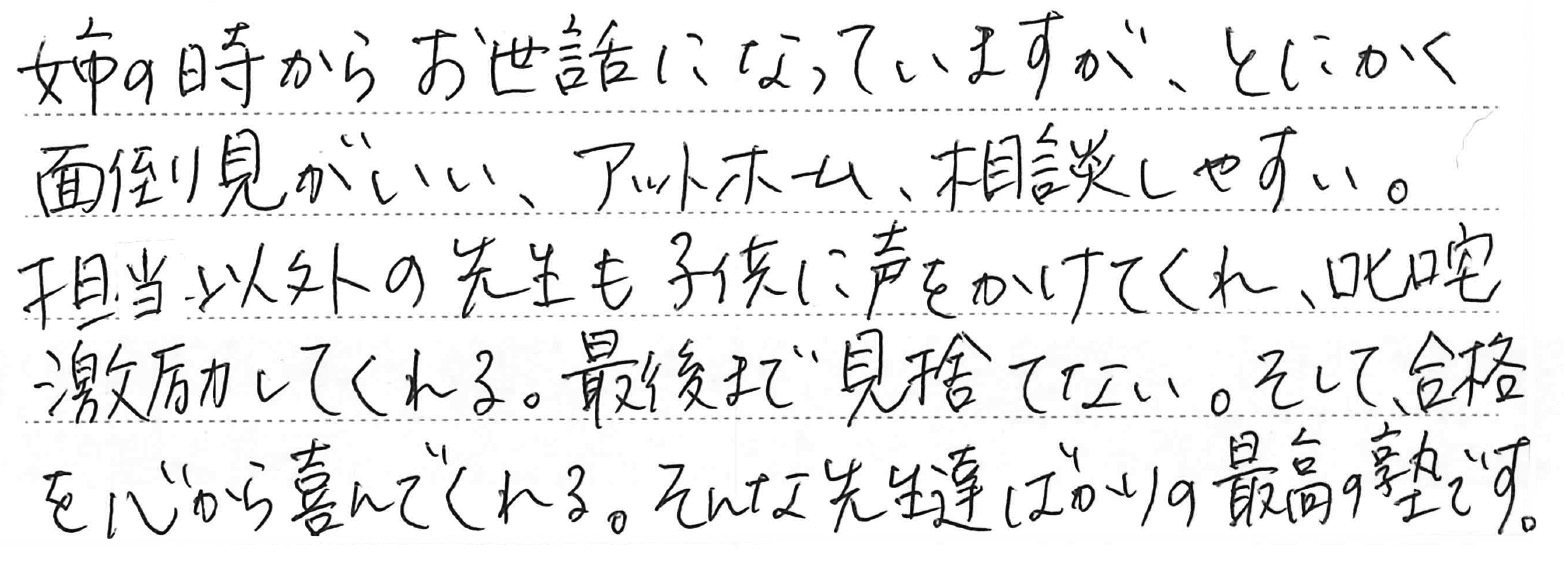 姉の時からお世話になっていますが、とにかく
面倒り見がいい、アットホーム、相談しやすい。
担当以外の先生も子供に声をかけてくれ、叱咤
激励してくれる。最後まで見捨てない。そして、合格
を心から喜んでくれる。そんな先生達ばかりの最高の塾です。